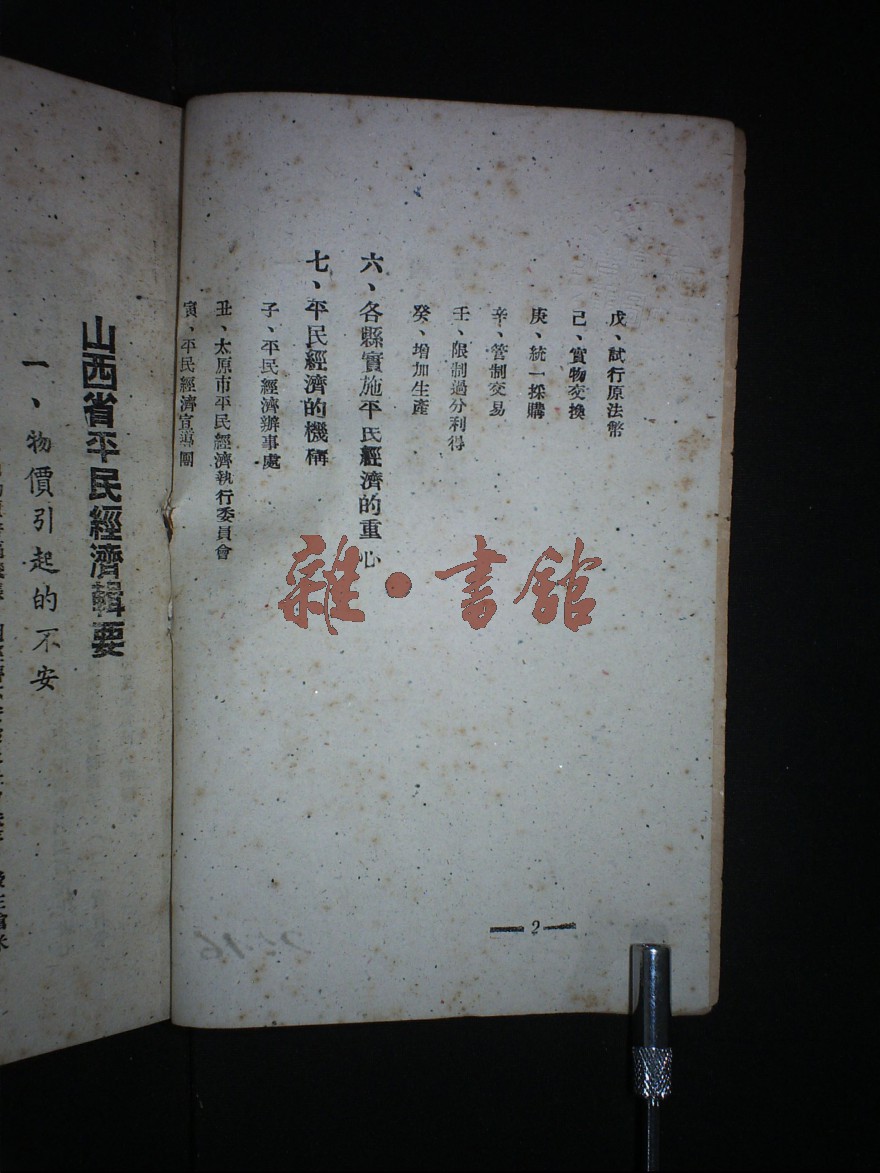 戊、試行原法幣
己、實物交換
庚、統一採購
辛、管制交易
壬、限制過分利得
癸、增加生產
六、各縣實施平民經濟的重心
七、平民經濟的機構
子、平民經濟辦事處
丑、太原市平民經濟執行委員會
寅、平民經濟宣導團
2
山西省平民經濟輯要
一、物價引起的不安
雜·書館